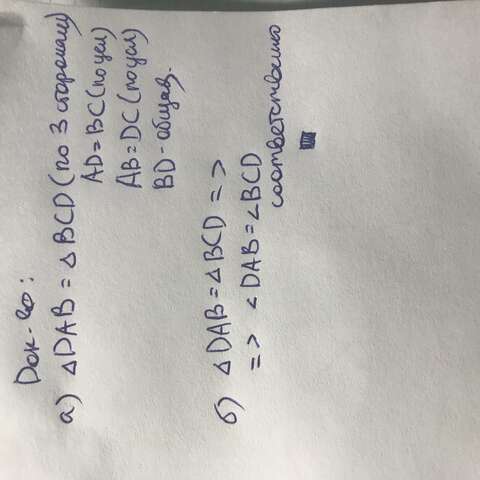 Док-во:
а) △DAB = △BCD (по 3 сторонам)
AD = BC (по усл)
AB = DC (по усл)
BD - общая.
б) △DAB = △BCD =>
=> ∠DAB = ∠BCD
соответственно